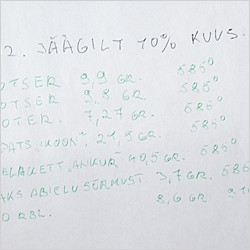 2. JÄÄGILT 10% KUUS.
OTSER 9,9 GR. 585°
OTSER 9,8 GR. 585°
OTER. 7,27 GR. 585°
PATS „IKOON" 21,9 GR. 585°
ELAKETT „ANKUR 40,5 GR. 585°
AKS ABIELUSÕRMUST 3,7 GR. 585°
0 RBL. 8,6 GR.